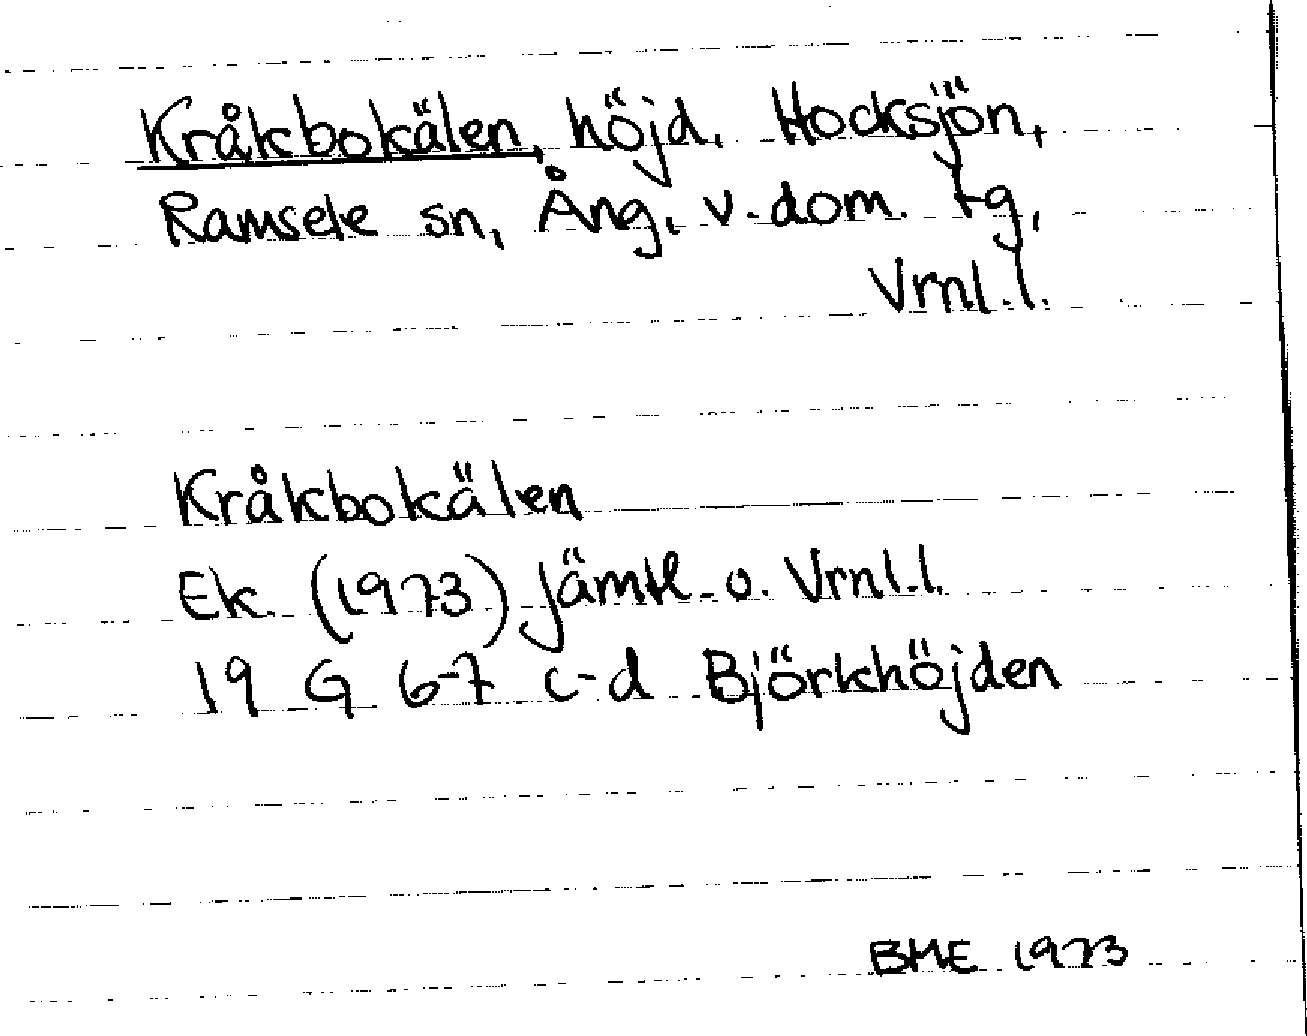 Kråkbokälen, höjd. Hocksjön,
Ramsele sn, Ång. v. dom. tg,
Vrnl. l.
Kråkbokälen
Ek. (1973) Jämtl. o. Vrnl. l.
19 G 6-7 c-d Björkhöjden
BME 1973